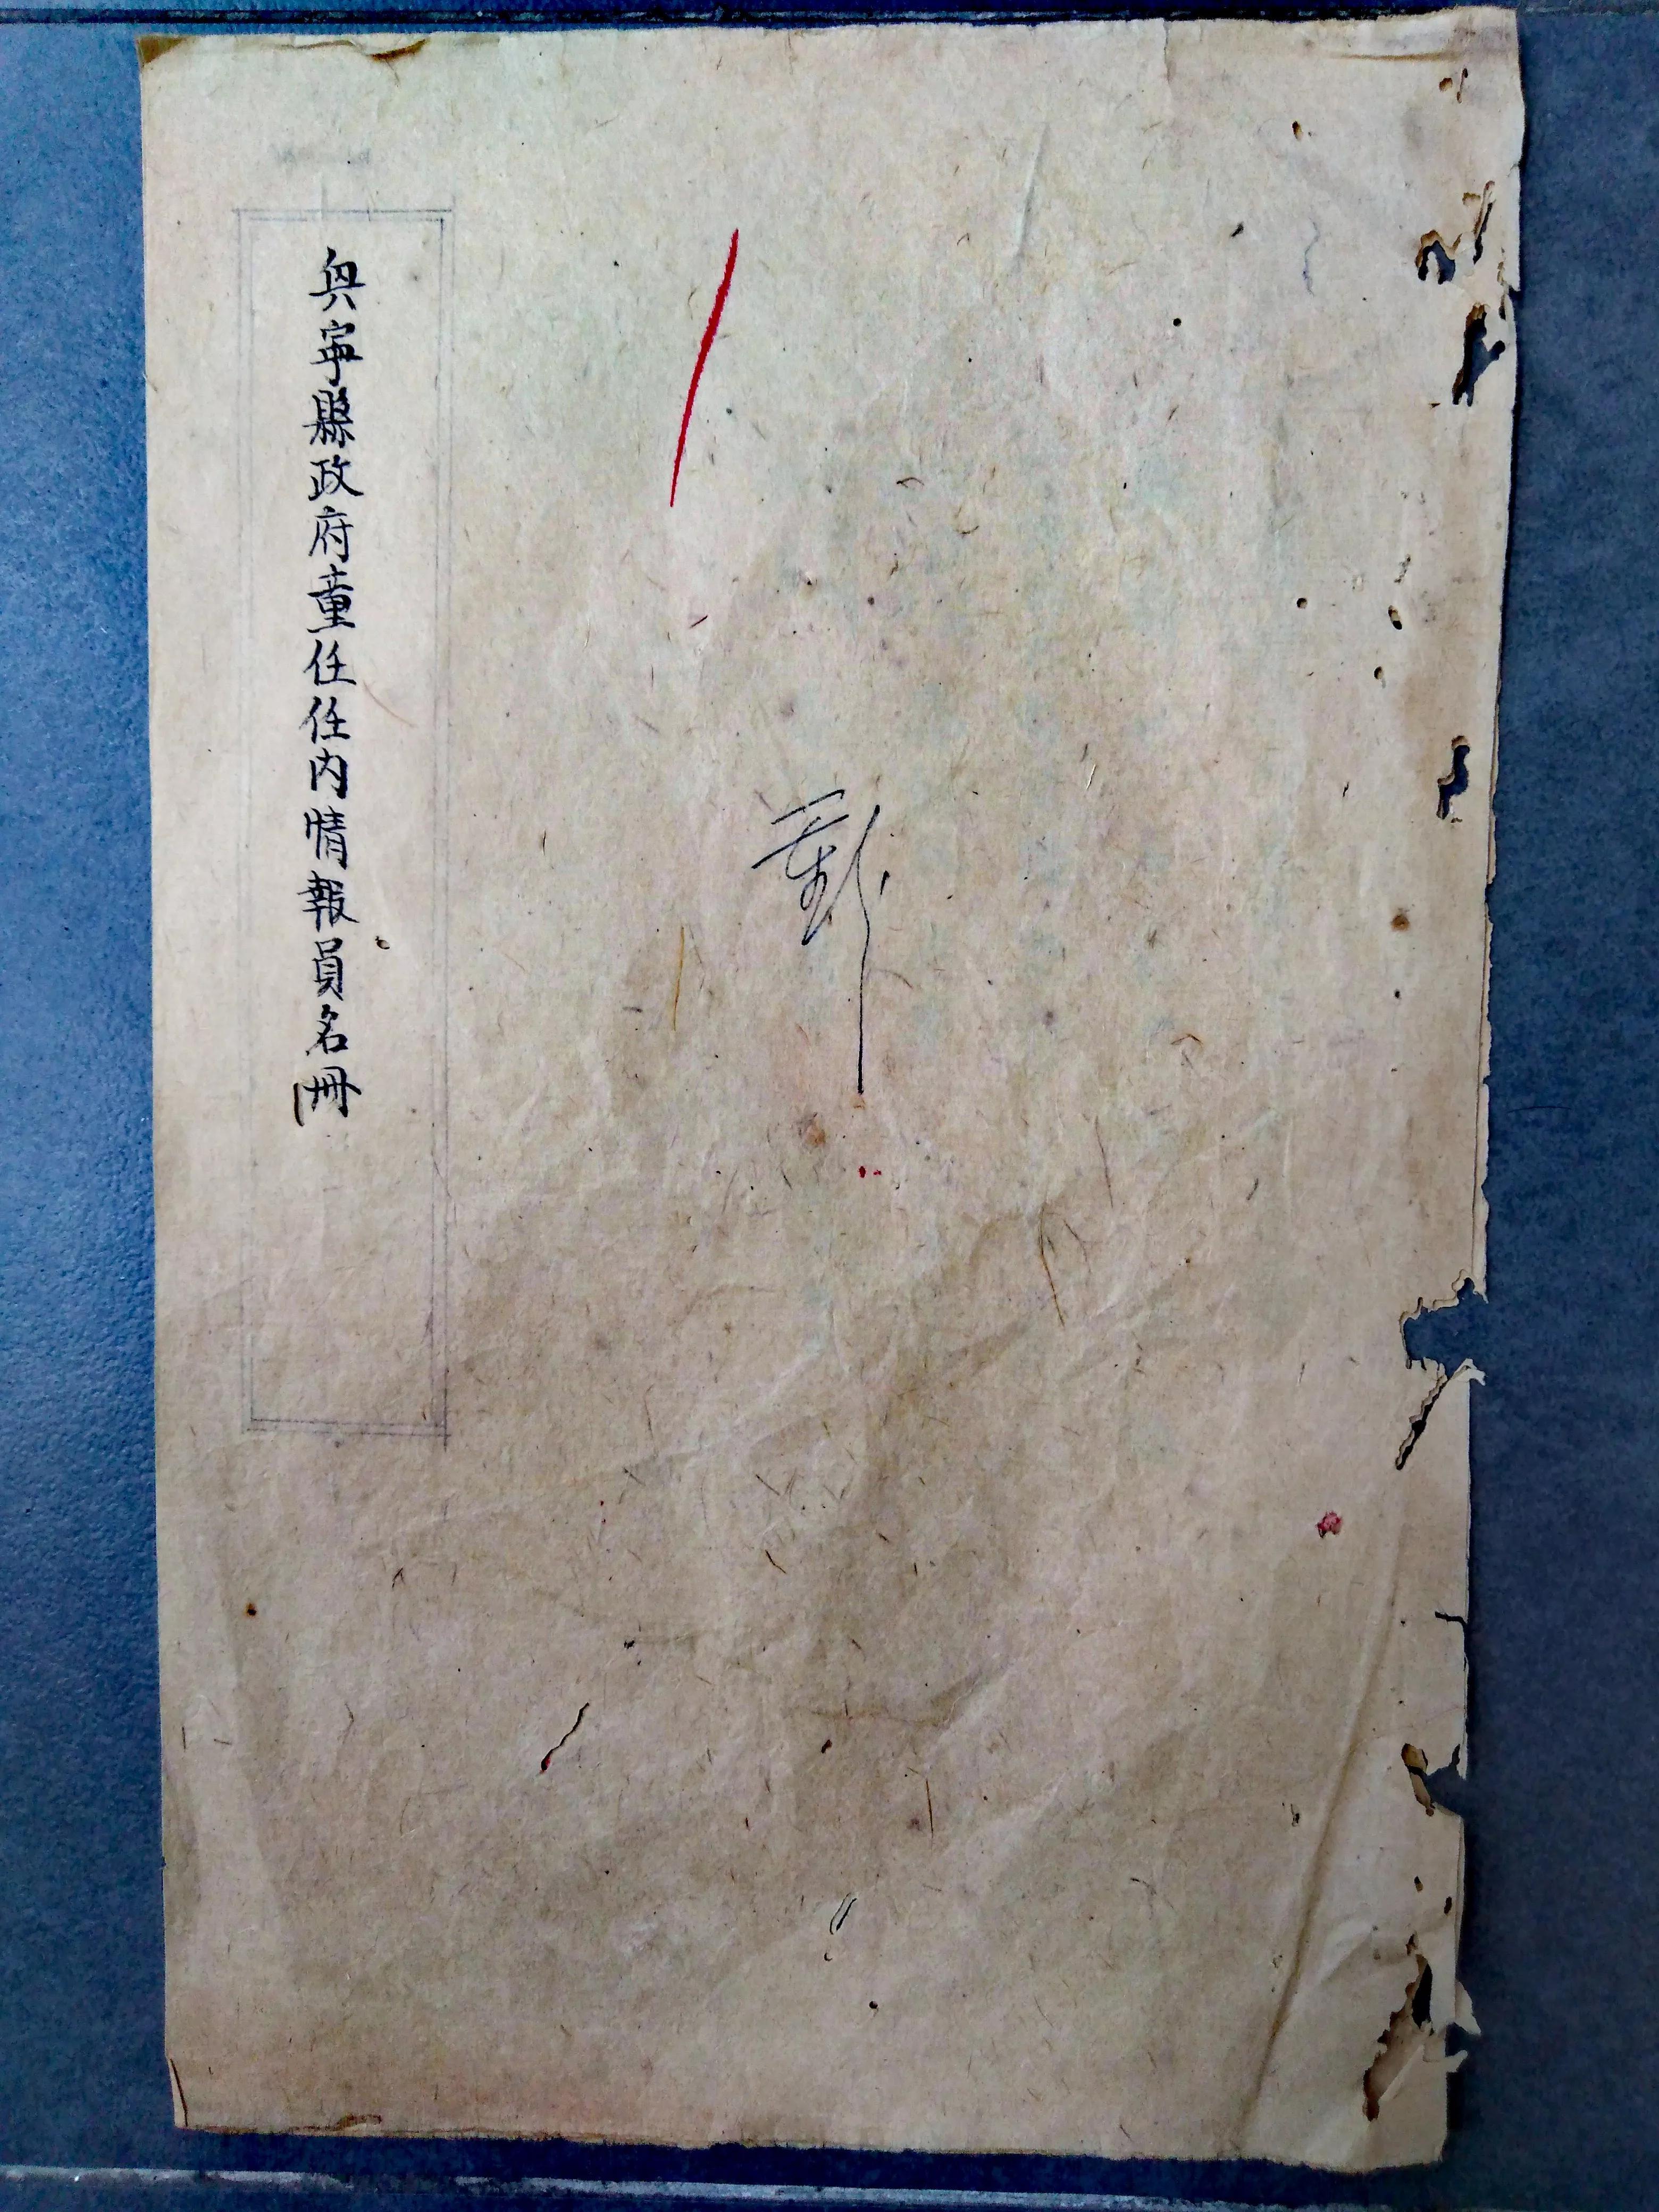 興寧縣政府童任任內情報員名冊